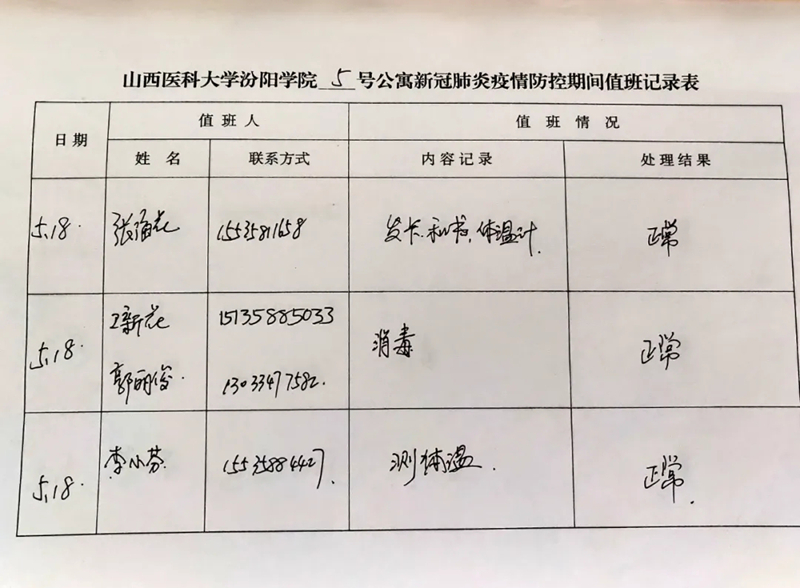 山西医科大学汾阳学院 5 号公寓新冠肺炎疫情防控期间值班记录表
日期 值班人 值班情况
姓名 联系方式 内容记录 处理结果
5.18. 张海花 发卡.和书.体温计. 正常
王新花 15135885033
5.18. 消毒 正常
郭丽俊. 13033477582.
5.18. 李小芬. 15535884427. 测体温. 正常.